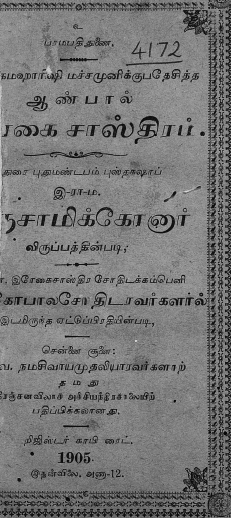 உ
பாமபதிதுணை.
4172
மஹாரிஷி மச்சமுனிக்குபதேசித்த
ஆண்பால்
ரகை சாஸ்திரம்.
புதுமண்டபம் புஸ்தகஷாப்
இ-ரா-ம.
சாமிக்கோனார்
விருப்பத்தின்படி;
இரேகைசாஸ்திர சோதிடக்கம்பெனி
கோபாலசோதிடரவர்களால்
இடமிருந்த ஏட்டுப்பிரதியின்படி,
சென்னை சூளை:
வ. நமசிவாயமுதலியாரவர்களாற்
தமது
நிரஞ்சனவிலாச அச்சியந்திரசாலையிற்
பதிப்பிக்கலானது.
றிஜிஸ்டர் காபி ரைட்.
1905
இதன்விலை, அணா-12.